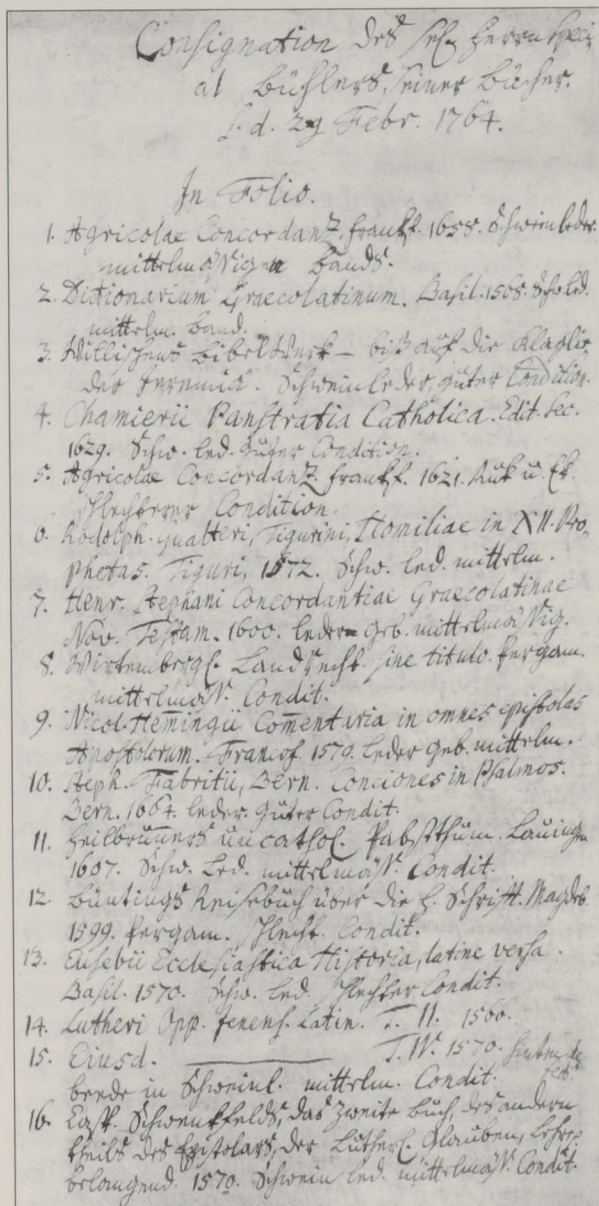 Consignation des sel. Herrn Speci
al Bühlers, seiner Bücher.
s. d. 29 Febr. 1764.
In Folio.
1. Agricolae Concordanz. Frankf. 1658. Schweinleder.
mittelmässigen Bands.
2. Dictionarium Graecolatinum. Basil. 1568. Schw. led.
mittelm. Band.
3. Bibelwerk - biß auf die Klaglie
der Jeremiä. Schweinleder, guter Condition.
4. Chamierii Panstratia Catholica. Edit. sec.
1629. Schw. led. guter Condition.
5. Agricolae Concordanz. Frankf. 1621.
schlechterer Condition.
6. Rodolph. Gualteri, Tigurini, Homiliae in XII. Pro,
phetas. Tiguri, 1572. Schw. led. mittelm.
7. Henr. Stephani Concordantiae Graecolatinae
Nov. Testam. 1600. leder geb. mittelmässig.
8. Wirtembergs. Landrecht. sine titulo. Pergam.
mittelmäss. Condit.
9. Nicol. Hemingii Com̃entaria in omnes epistolas
Apostolorum. Francof. 1579. Leder geb. mittelm.
10. Steph. Fabritii, Bern. Conciones in Psalmos.
Bern. 1664. leder. guter Condit.
11. Heilbrunners uncathol. Pabstthum. Lauingen
1607. Schw. Led. mittelmäss. Condit.
12. Büntings Reisebuch über die H. Schrifft. Magdeb.
1599. Pergam. schlecht. Condit.
13. Eusebii Ecclesiastica Historia, latine versa.
Basil. 1570. Schw. led. schlechter Condit.
14. Lutheri Opp. Jenens. Latin. T. II. 1566.
15. Eiusd. T. IV. 1570.
beede in Schweinl. mittelm. Condit.
16. Casp. Schwenkfelds, das Zweite Buch des andern
theils des Epistolars, der Luther. Glauben, Lehre
belangend. 1570. Schwein led. mittelmäss. Condit.